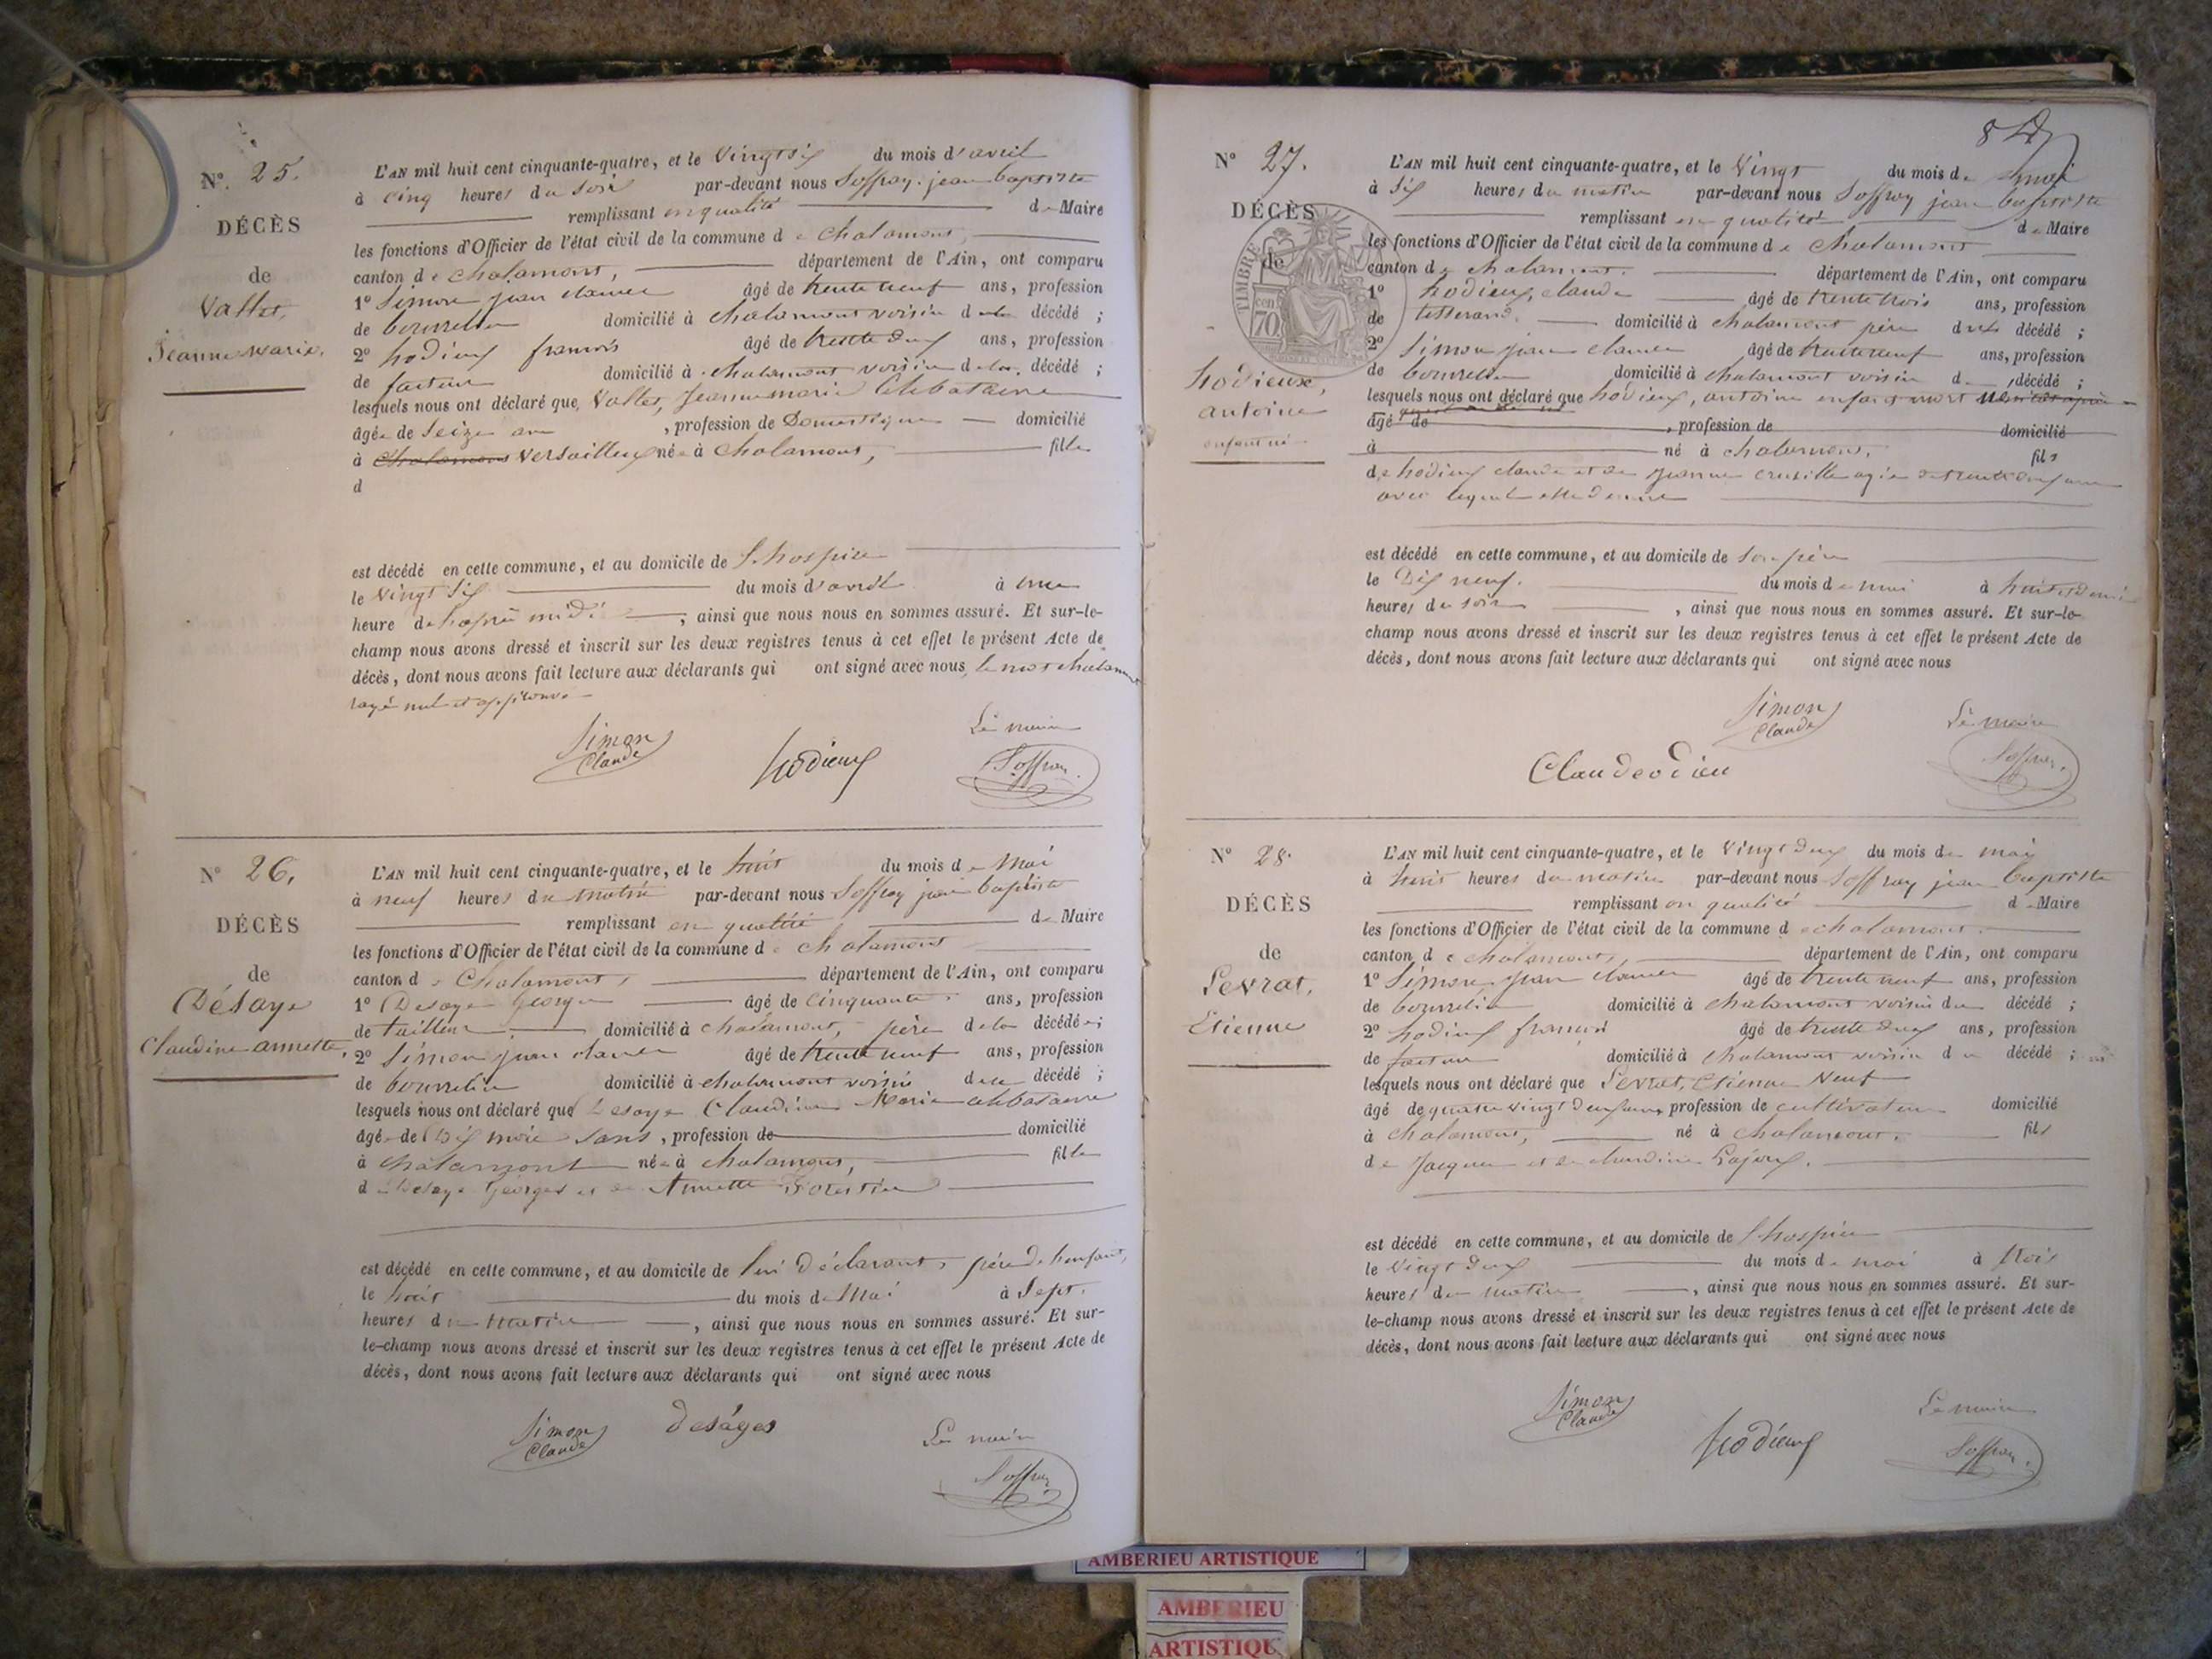 N° 25.
DÉCÈS
de
Vallet,
Jeanne Marie.
L'AN mil huit cent cinquante-quatre, et le Vingt six du mois d'avril
à cinq heures du soir par-devant nous Soffray jean baptiste
remplissant en qualité de Maire
les fonctions d'Officier de l'état civil de la commune de chalamont,
canton de chalamont, département de l'Ain, ont comparu
1° Simon jean claude âgé de trente neuf ans, profession
de bourrelier domicilié à chalamont voisin de la décédé ;
2° hodieux françois âgé de trente deux ans, profession
de facteur domicilié à chalamont voisin de la décédé ;
lesquels nous ont déclaré que Vallet, Jeanne marie Célibataire
âgée de Seize ans , profession de Domestique domicilié
à chalamont Versailleux née à chalamont, fille
d
est décédé en cette commune, et au domicile de l'hospice
le Vingt Six du mois d'avril à une
heure de l'après midi , ainsi que nous nous en sommes assuré. Et sur-le-
champ nous avons dressé et inscrit sur les deux registres tenus à cet effet le présent Acte de
décès, dont nous avons fait lecture aux déclarants qui ont signé avec nous, le mot chalamont
rayé nul et approuvé
Simon
Claude
hodieux
Le maire
Soffray
N° 26.
DÉCÈS
de
Désaye
Claudine annette,
L'AN mil huit cent cinquante-quatre, et le huit du mois de Mai
à neuf heures du matin par-devant nous Soffray jean baptiste
remplissant en qualité de Maire
les fonctions d'Officier de l'état civil de la commune de chalamont
canton de Chalamont, département de l'Ain, ont comparu
1° Desaye George âgé de Cinquante ans, profession
de tailleur domicilié à chalamont, père de la décédée ;
2° Simon jean claude âgé de trente neuf ans, profession
de bourrelier domicilié à chalamont voisin de la décédé ;
lesquels nous ont déclaré que Desaye Claudine Marie célibataire
âgée de Dix mois sans , profession de domicilié
à chalamont née à chalamont, fille
de Desaye Georges et de Annette Forestier
est décédé en cette commune, et au domicile de lui Déclarant, père de l'enfant,
le huit du mois de Mai à Sept
heures du matin , ainsi que nous nous en sommes assuré. Et sur-
le-champ nous avons dressé et inscrit sur les deux registres tenus à cet effet le présent Acte de
décès, dont nous avons fait lecture aux déclarants qui ont signé avec nous
Simon
Claude
deságes
Le maire
Soffray
N° 27.
DÉCÈS
de
TIMBRE
cen
70
hodieux,
antoine
enfant né
L'AN mil huit cent cinquante-quatre, et le Vingt du mois de mai
à Six heures du matin par-devant nous Soffray jean baptiste
remplissant en qualité de Maire
les fonctions d'Officier de l'état civil de la commune de Chalamont
canton de chalamont. département de l'Ain, ont comparu
1° hodieux, claude âgé de trente trois ans, profession
de tisserand. domicilié à chalamont père du décédé ;
2° Simon jean claude âgé de trente neuf ans, profession
de bourrelier domicilié à chalamont voisin d décédé ;
lesquels nous ont déclaré que hodieux, antoine enfant mort
âgé de , profession de domicilié
à né à chalamont, fils
de hodieux claude et de jeanne agée de trente deux ans
avec lequel elle demeure
est décédé en cette commune, et au domicile de son père
le Dix neuf. du mois de mai à huit et demi
heures du soir , ainsi que nous nous en sommes assuré. Et sur-le-
champ nous avons dressé et inscrit sur les deux registres tenus à cet effet le présent Acte de
décès, dont nous avons fait lecture aux déclarants qui ont signé avec nous
Simon
Claude
Claudeodieu
Le maire
Soffray
N° 28.
DÉCÈS
de
Levrat,
Etienne
L'AN mil huit cent cinquante-quatre, et le Vingt deux du mois de mai
à huit heures du matin par-devant nous Soffray jean baptiste
remplissant en qualité de Maire
les fonctions d'Officier de l'état civil de la commune de chalamont.
canton de chalamont, département de l'Ain, ont comparu
1° Simon jean claude âgé de trente neuf ans, profession
de bourrelier domicilié à chalamont voisin du décédé ;
2° hodieux françois âgé de trente deux ans, profession
de facteur domicilié à chalamont voisin du décédé ;
lesquels nous ont déclaré que Levrat, Etienne Veuf
âgé de quatre vingt deux ans, profession de cultivateur domicilié
à chalamont, né à chalamont. fils
de Jacques et de claudine Lajoux.
est décédé en cette commune, et au domicile de l'hospice
le Vingt deux du mois de mai à trois
heures du matin , ainsi que nous nous en sommes assuré. Et sur-
le-champ nous avons dressé et inscrit sur les deux registres tenus à cet effet le présent Acte de
décès, dont nous avons fait lecture aux déclarants qui ont signé avec nous
Simon
Claude
hodieux
Le maire
Soffray
AMBERIEU ARTISTIQUE
AMBERIEU
ARTISTIQUE